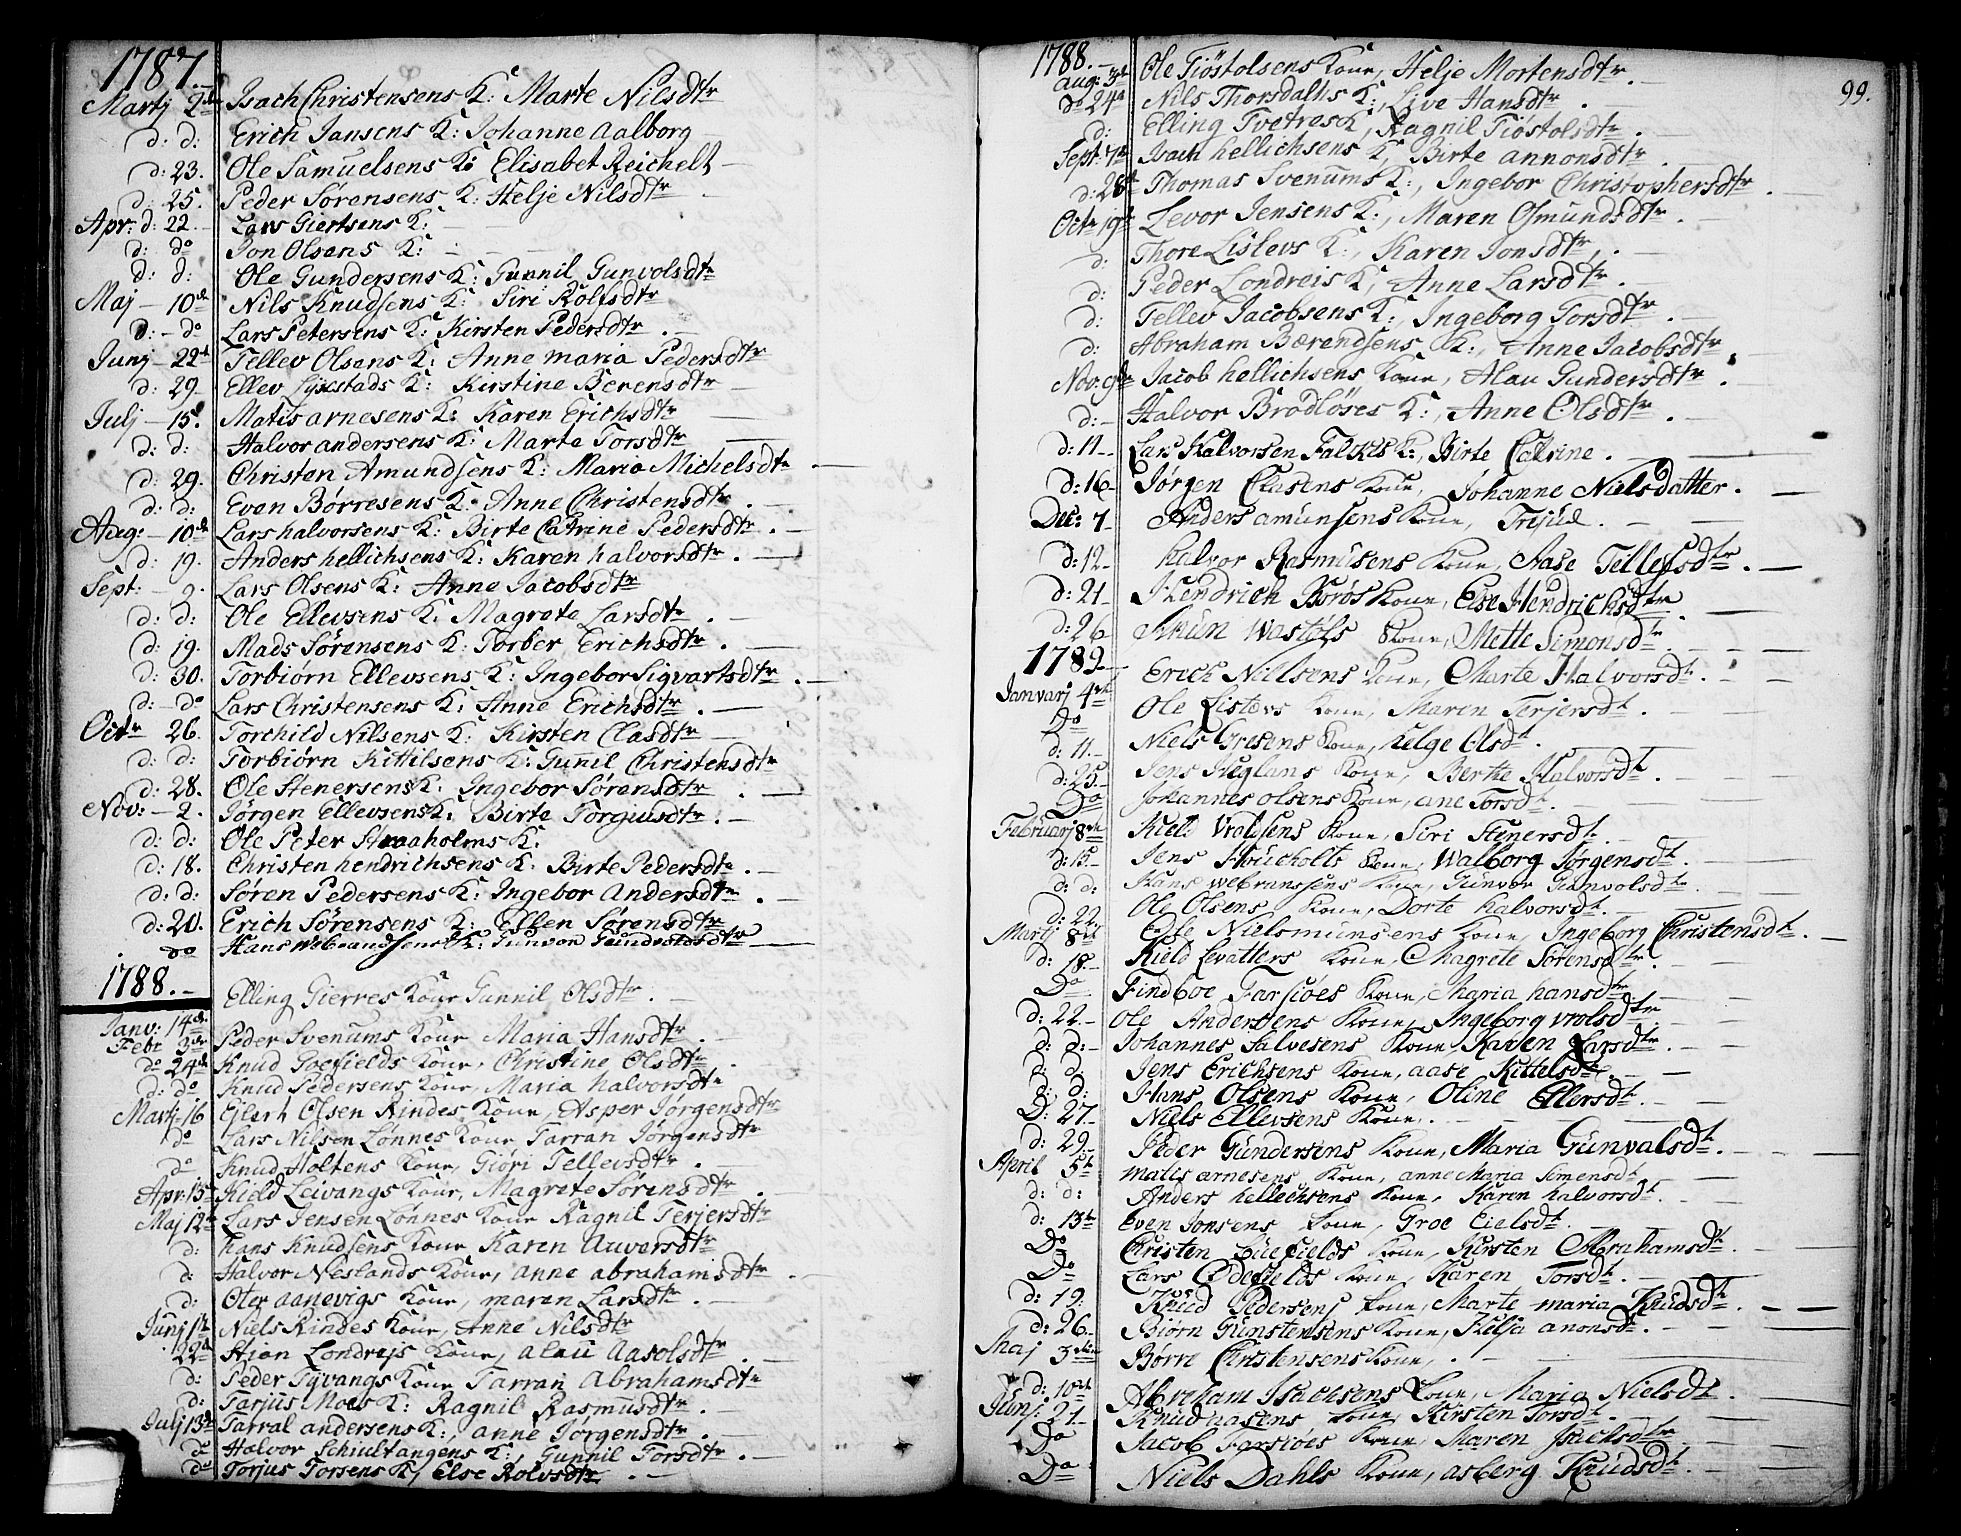 1787.
Martj 2d Isach Christensens K: Marte Nilsdtr
d: d: Erich Jansens K: Johanne Aalborg
d: 23. Ole Samuelsens K: Elisabet Reichelt
d: 25. Peder Sørensens K: Helje Nilsdtr
Apr: d: 22. Lars Giertsens K:
d: do Jon Olsens K:
d: d: Ole Gundersens K: Gunnil Gunvolsdtr
Maj – 10de Nils Knudsens K: Siri Rolfsdtr
d: – do Lars Petersens K: Kirsten Pedersdtr
Junj – 22d Tellev Olsens K: Anne Maria Pedersdtr
d: 29 Ellev Lykstads K: Kirstine Berensdtr
Julj – 15. Matis arnesens K: Karen Erichsdtr
d: d: Halvor andersens K: Marte Torsdtr
d: 29. Christen Amundsens K: Maria Michelsdtr
d: d: Even Børresens K: Anne Christensdtr
Aug: – 10de Lars halvorsens K: Birte Catrine Pedersdtr
d: 19. Anders hellichsens K: Karen halvorsdtr
Sept: – 9. Lars Olsens K: Anne Jacobsdtr
d: d: Ole Ellevsens K: Magrete Larsdtr
d: 19. Mads Sørensens K: Torber Erichsdtr
d: 30. Torbiørn Ellevsens K: Ingebor Sigvartsdtr
d: – do Lars Christensens K: Anne Erichsdtr
Octr 26. Torchild Nilsens K: Kirsten Clasdtr
d: d: Torbiørn Kittilsens K: Gunnil Christensdtr
d: 28. Ole Stenersens K: Ingebor Sørensdtr
Nov: – 2. Jørgen Ellevsens K: Birte Torgiusdtr
d: d: Ole Peter Straaholms K:
d: 18. Christen hendrichsens K: Birte Pedersdtr
d: d: Søren Pedersens K: Ingebor Andersdtr
d: 20. Erich Sørensens K: Ellen Sørensdtr
do Hans Webrandsens K: Gunvor
1788.
Elling Gierres Koue Gunnil Olsdtr
Janv: 14de
Febr 3de Peder Svenums Koue Maria Hansdtr
do 24de Knud Goefields Koue, Christine Olsdtr
d: do Knud Pedersens Koue, Maria halvorsdtr
Martj 16 Ejlert Olsen Rindes Koue, Asper Jørgensdtr
do Lars Nilsen Lønnes Koue Tarran Jørgensdtr
do Knud Holtens Koue, Giøri Tellevsdtr
Apr: 13 Kield Leivangs Koue, Magrete Sørensdtr
Maj 12te Lars Jensen Lønnes Koue Ragnil Terjersdtr
d: hans Knudsens Koue Karen Auversdtr
d: Halvor Neslands Koue, anne abrahamsdtr
d: Oter aanevigs Koue, maren Larsdtr
Junj 1te Niels Rindes Koue, Anne Nilsdtr
22d Stian Londrejs Koue, alau Aasolsdtr
d: Peder Tyvangs Koue Tarran Abrahamsdtr
d: Tarjus Moes K: Ragnil Rasmusdtr
Julj 13de Tarral andersens K:, anne Jørgensdtr
do Halvor Schiultangens K:, Gunnil Torsdtr
do Torjus Torsens K, Else Rolvsdtr
1788.
99.
aug: 3de Ole Tiøstolsens Koue, Helje Mortensdtr
do 24d Nils Thorsdalls K:, Live Hansdtr
d: Elling Tvetres K, Ragnil Tiøstolsdtr
Sept: 7de Isach hellichsens K, Birte annonsdtr
d: 28d Thomas Svenums K:, Ingebor Christophersdtr
Octr 19d Levor Jensens K:, Maren Osmundsdtr
d: Thore Lislevs K:, Karen Jonsdtr
d: Peder Londreis K, Anne Larsdtr
d: Tellev Jacobsens K:, Ingeborg Torsdtr
d: Abraham Bærendsens K:, Anne Jacobsdtr
Nov: 9de Jacob hellichsens Koue, Alau Gundersdtr
d: – Halvor Brodløses K:, Anne Olsdtr
d: 11 – Lars Halvorsen Falkes K:, Birte Catrine
d: 16 Jørgen Clasens Koue, Johanne Nielsdatter
Dec: 7 Anders amunsens Koue,
d: 12 halvor Rasmusens Koue, Aase Tellefsdtr
d: 21 Hendrich Borøs Koue, Else Hendrichsdtr
d: 26 Koue, Mette Simonsdtr
1789
Erich Nielsens Koue, Marte Halvorsdt
Janvarj 4de
Do Ole Listovs Koue, Maren Terjersdt
d: 11. Niels Gresens Koue, helge Olsdt
d: 25. Jens Heglans Koue, Berthe Halvorsdt
Do Johannes olsens Koue, ane Torsdt
Februarj 8de Kield Vralsens Koue, Siri Stenersdt
d: 15 Jens Houeholts Koue, Walborg Jørgensdt
d: d: Hans Koue, Gunvor Gunvolsdtr
d: 22 Ole Olsens Koue, Dorte halvorsdt
Martj 8de Ole Nielsmunsens Koue, Ingeborg Christensdt
d: 18 Kield Levatters Koue, Magrete Sørensdtr
Do Findboe Farsiøes Koue, Maria hansdtr
d: 22. Ole Andersens Koue, Ingeborg vrolsdtr
d: d: Johannes Salvesens Koue, Karen Larsdtr
d: d: Jens Erichsens Koue, aase Kittelsdtr
d: d: Hans Olsens Koue, Oline Ellersdt
D: 27. Niels Ellevsens Koue
d: 29. Peder Gundersens Koue, Maria Gunvalsdt
April 5t matis arnesens Koue, anne Maria Simensdt
d: d: Anders hellichsens Koue, Karen halvorsdt
d: 13t Even Jonsens Koue, Groe Eielsdt
Do Christen Luefields Koue, Kirsten Abrahamsdt
Do Lars Ødefields Koue, Karen Torsdt
d: 19. Knud Pedersens Koue, Marte maria Knudsdt
d: 26 Biørn Gunstensens Koue, Helja anonsdt
Maj 3die Børre Christensens Koue,
d: 10de Abraham Isachsens Koue, Maria Nielsdt
Junj: 21. Knud aasens Koue, Kirsten Torsdt
Do Jacob Farsiøes Koue, Maren Isachsdtr
Do Niels Dahls Koue, asberg Knudsdt